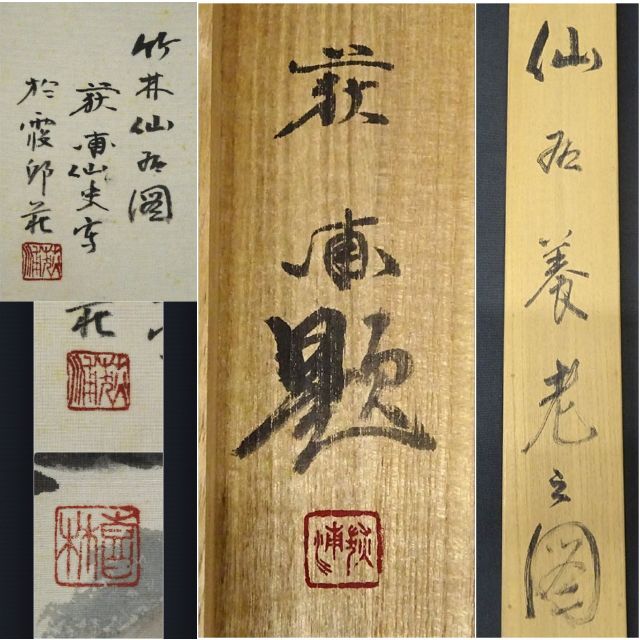 竹林仙居図
荻浦仙史写
於霞邱荘
荻浦
荘
荻浦
荻浦題
荻浦
仙居養老之図